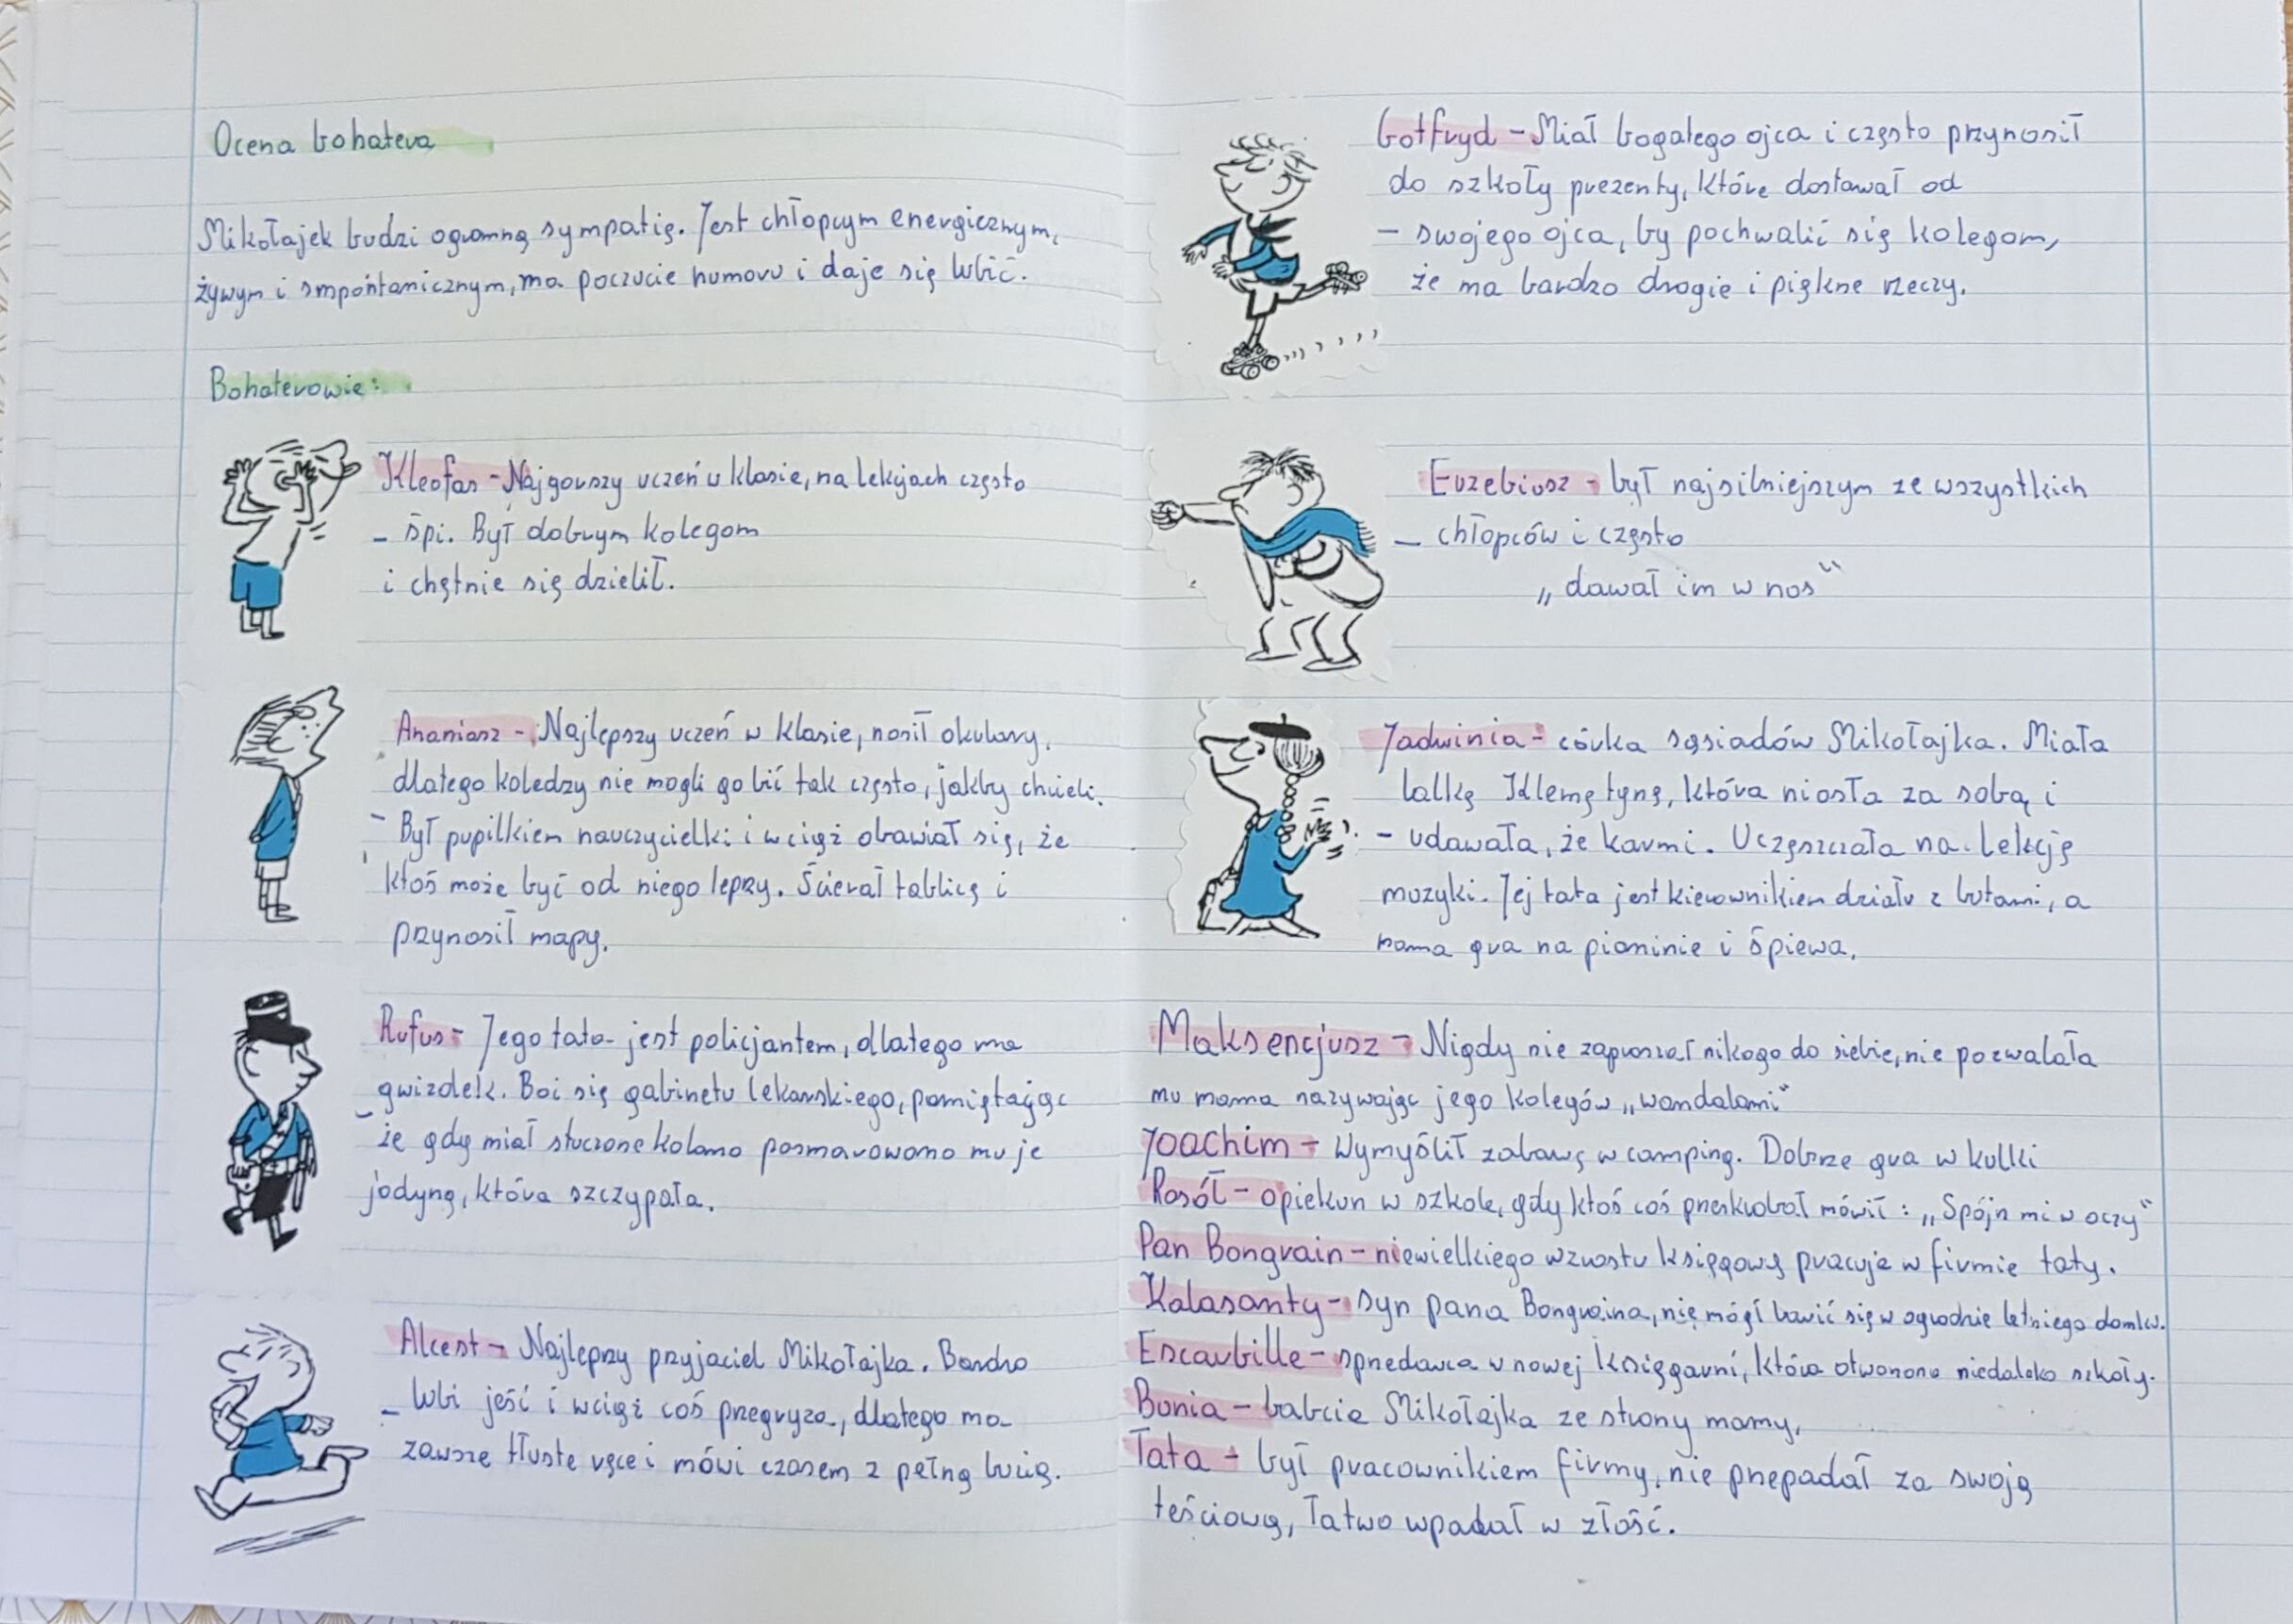 Ocena bohatera
Mikołajek budzi ogromną sympatię. Jest chłopcym energicznym,
żywym i smpontanicznym, ma poczucie humoru i daje się lubić.
Bohaterowie:
Kleofas - Najgorszy uczeń w klasie, na lekcjach często
- śpi. Był dobrym kolegom
i chętnie się dzielił.
Ananiasz - Najlepszy uczeń w klasie, nosił okulary,
dlatego koledzy nie mogli go bić tak często, jakby chcieli.
- Był pupilkiem nauczycielki i wciąż obawiał się, że
ktoś może być od niego lepszy. Ścierał tablicę i
przynosił mapy.
Rufus - Jego tata jest policjantem, dlatego ma
gwizdek. Boi się gabinetu lekarskiego, pamiętając
- że gdy miał stłuczone kolano posmarowano mu je
jodyną, która szczypała.
Alcest - Najlepszy przyjaciel Mikołajka. Bardzo
- lubi jeść i wciąż coś przegryza, dlatego ma
zawsze tłuste ręce i mówi czasem z pełną buzią.
Gotfryd - Miał bogatego ojca i często przynosił
do szkoły prezenty, które dostawał od
- swojego ojca, by pochwalić się kolegom,
że ma bardzo drogie i piękne rzeczy.
Euzebiusz - był najsilniejszym ze wszystkich
- chłopców i często
„dawał im w nos"
Jadwinia - córka sąsiadów Mikołajka. Miała
lalkę Klemętynę, która niosła za sobą i
- udawała, że karmi. Uczęszczała na lekcję
muzyki. Jej tata jest kierownikiem działu z butami, a
mama gra na pianinie i śpiewa.
Maksencjusz - Nigdy nie zapraszał nikogo do siebie, nie pozwalała
mu mama nazywając jego kolegów „wandalami"
Joachim - Wymyślił zabawę w camping. Dobrze gra w kulki
Rosół - opiekun w szkole, gdy ktoś coś przeskrobał mówił: „Spójrz mi w oczy"
Pan Bongrain - niewielkiego wzrostu księgowy pracuje w firmie taty.
Kalasanty - syn pana Bongraina, nie mógł bawić się w ogrodzie letniego domku.
Escarbille - sprzedawca w nowej księgarni, którą otworzono niedaleko szkoły.
Bunia - babcia Mikołajka ze strony mamy.
Tata - był pracownikiem firmy, nie przepadał za swoją
teściową, łatwo wpadał w złość.